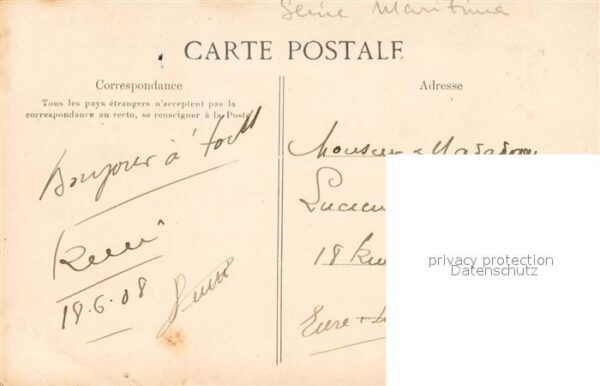 Seine Maritime
CARTE POSTALE
Correspondance
Tous les pays étrangers n'acceptent pas la
correspondance au recto, se renseigner à la Poste
Bonjour à tous
18-6-08
Adresse
Monsieur &
Lucien
18 Rue
Eure &
privacy protection
Datenschutz